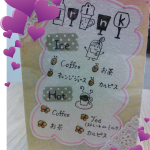 Drink
Ice
Coffee
お茶
オレンジジュース
カルピス
Hot
Coffee
Tea
お茶
カルピス